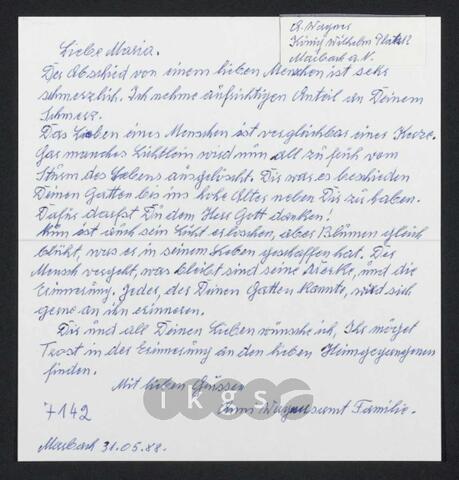 A. Wagner
König Wilhelm Platz 2
Marbach a. N.
Liebe Maria.
Der Abschied von einem lieben Menschen ist sehr
schmerzlich. Ich nehme aufrichtigen Anteil an Deinem
Schmerz.
Das Leben eines Menschen ist vergleichbar einer Kerze.
Gar manches Lichtlein wird nun all zu früh vom
Sturm des Lebens ausgelöscht. Dir war es beschieden
Deinen Gatten bis ins hohe Alter neben Dir zu haben.
Dafür darfst Du dem Herr Gott danken!
Nun ist auch sein Licht erloschen, aber Blumen gleich
blüht, was er in seinem Leben geschaffen hat. Der
Mensch vergeht, was bleibt sind seine Werke, und die
Erinnerung. Jeder, der Deinen Gatten kannte, wird sich
gerne an ihn erinneren.
Dir und all Deinen Lieben wünsche ich, Ihr möget
Trost in der Erinnerung an den lieben Heimgegangenen
finden.
Mit lieben Grüssen
ikgs
Anni Wagner samt Familie.
7142
Marbach 31.05.88.